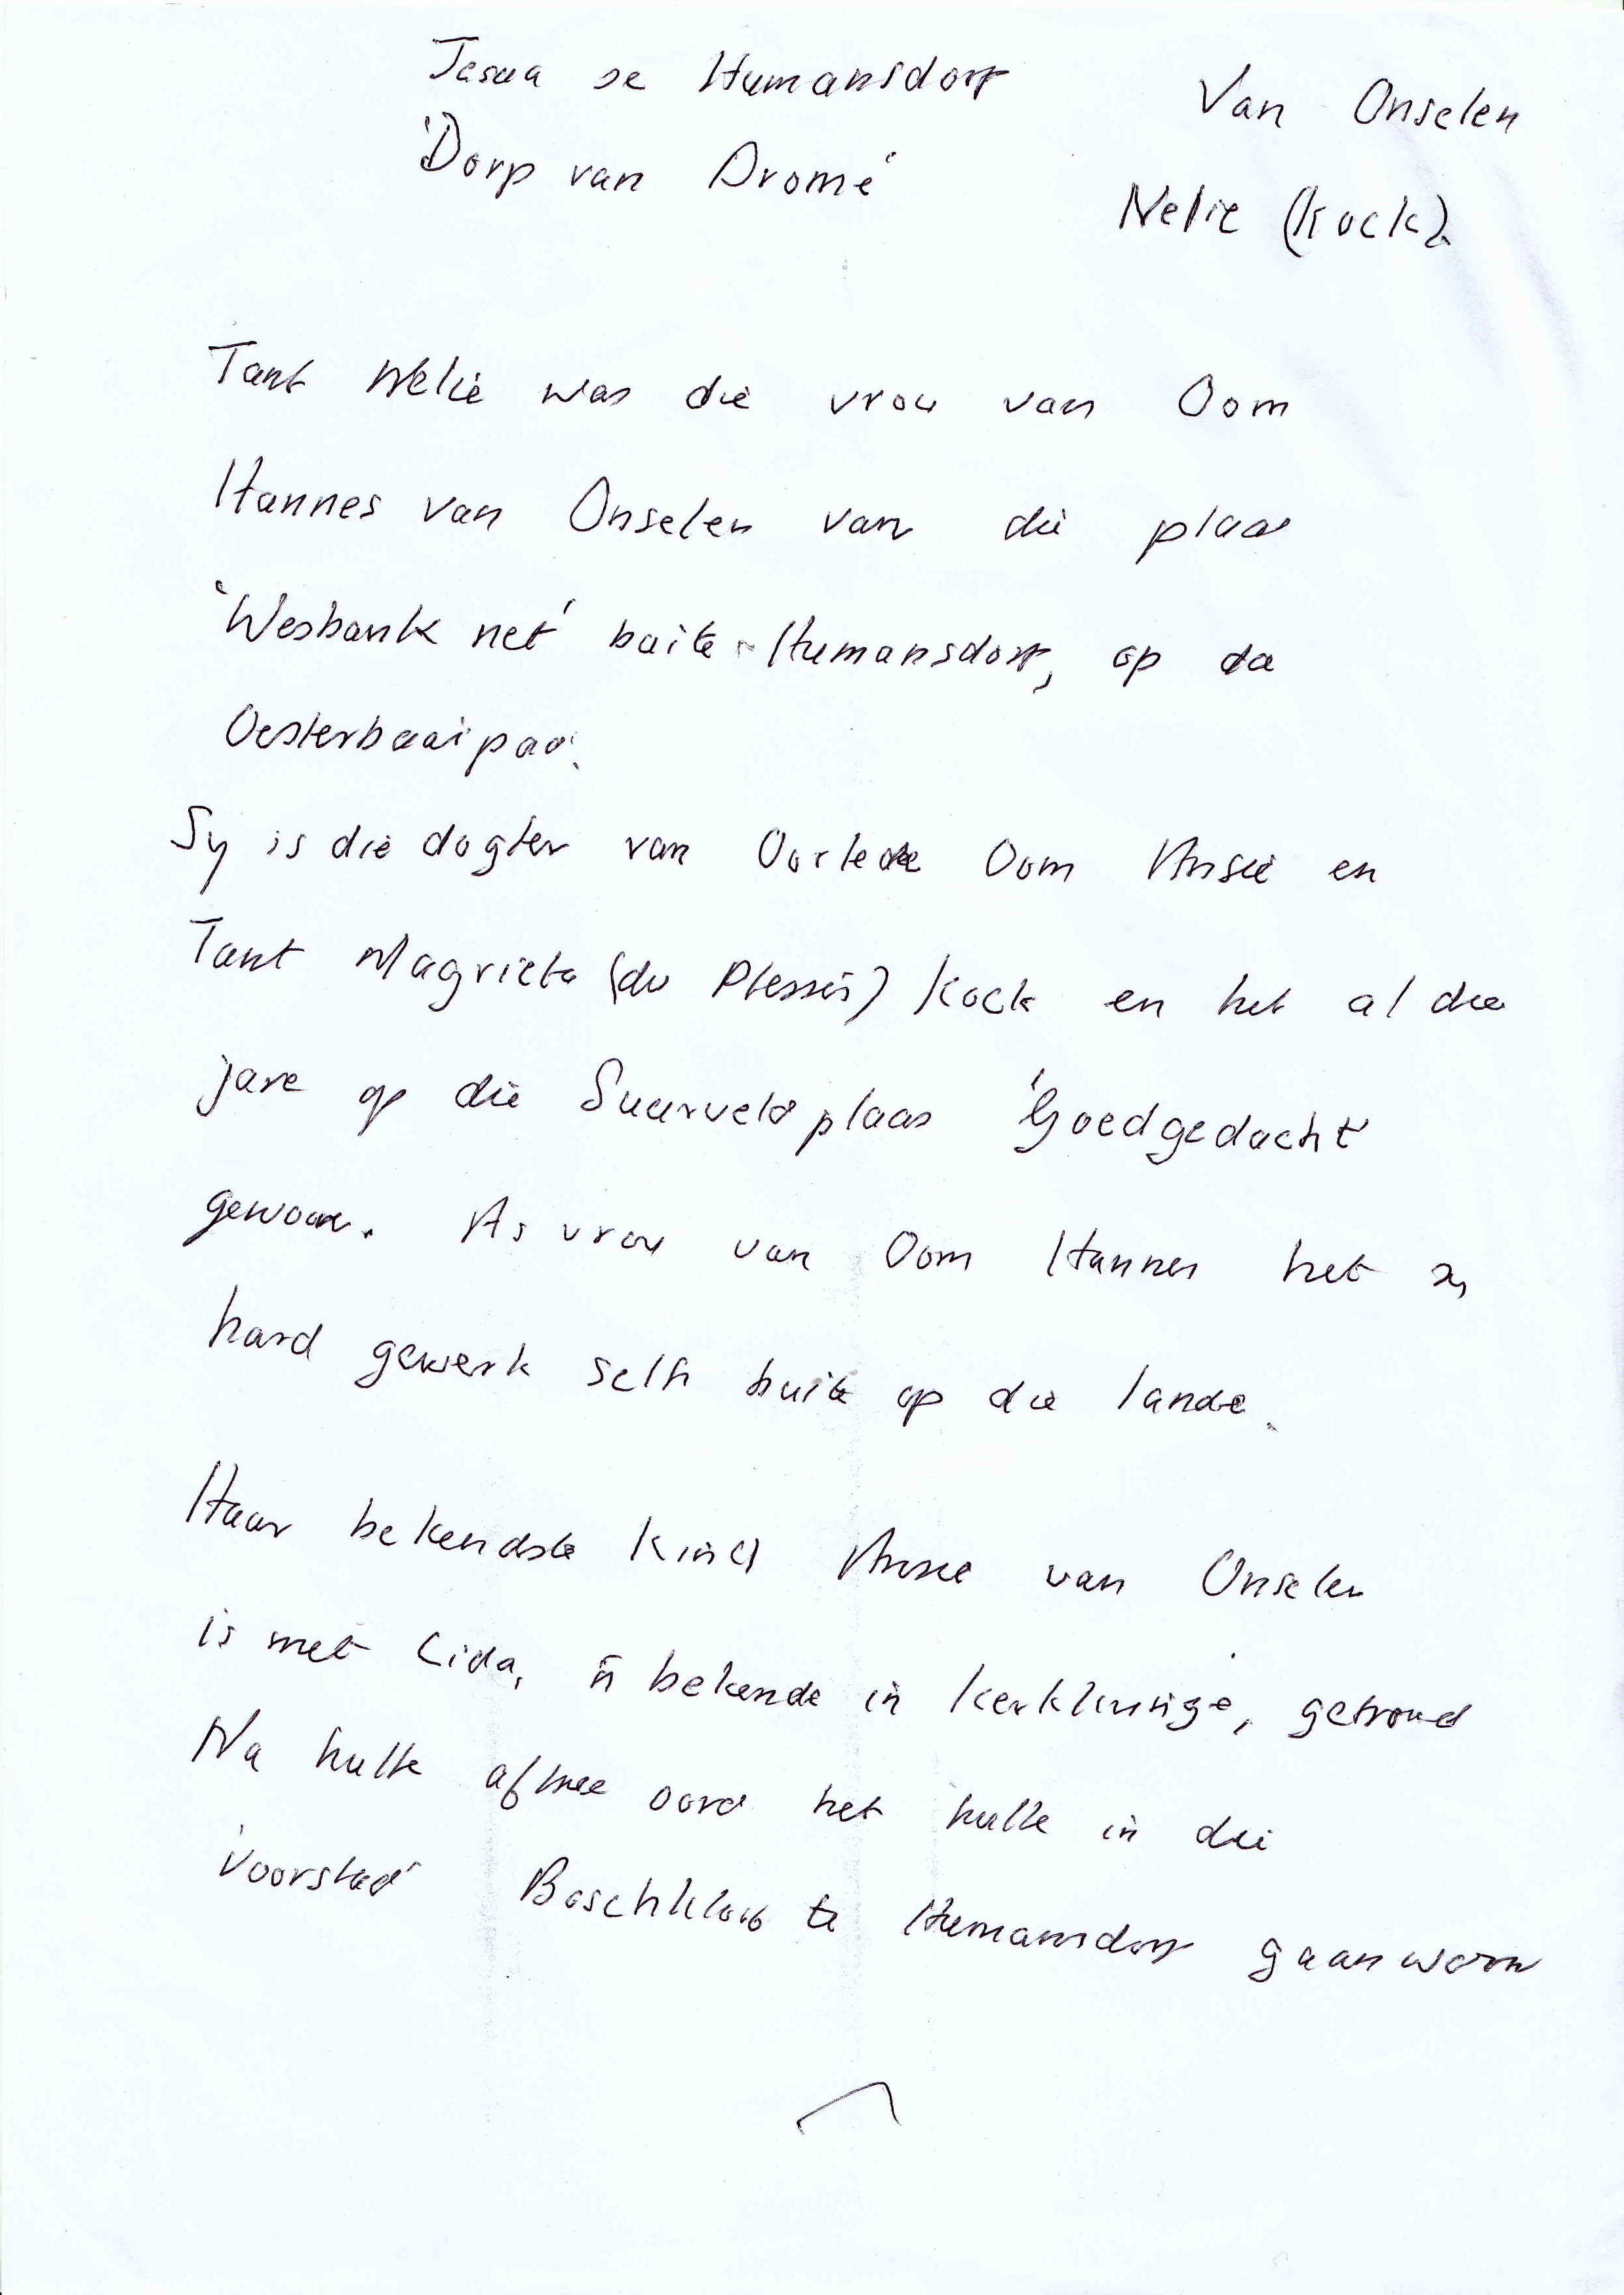 Jasua se Humansdorp
'Dorp van Drome'
Van Onselen
Nelie (Kock)
Tant Nelie was die vrou van Oom
Hannes van Onselen van die plaas
'Wesbank net' buite Humansdorp, op die
Oesterbaaipad.
Sy is die dogter van Oorlede Oom Ansie en
Tant Magrieta (du Plessis) Kock en het al die
jare op die Suurveld plaas 'Goedgedacht'
gewoon. As vrou van Oom Hannes het sy
hard gewerk selfs buite op die lande.
Haar bekendste kind Ansie van Onselen
is met Lida, 'n bekende in kerkkringe, getroud
Na hulle aftree oord het hulle in die
'voorstad' Boschkloof te Humansdorp gaan woon